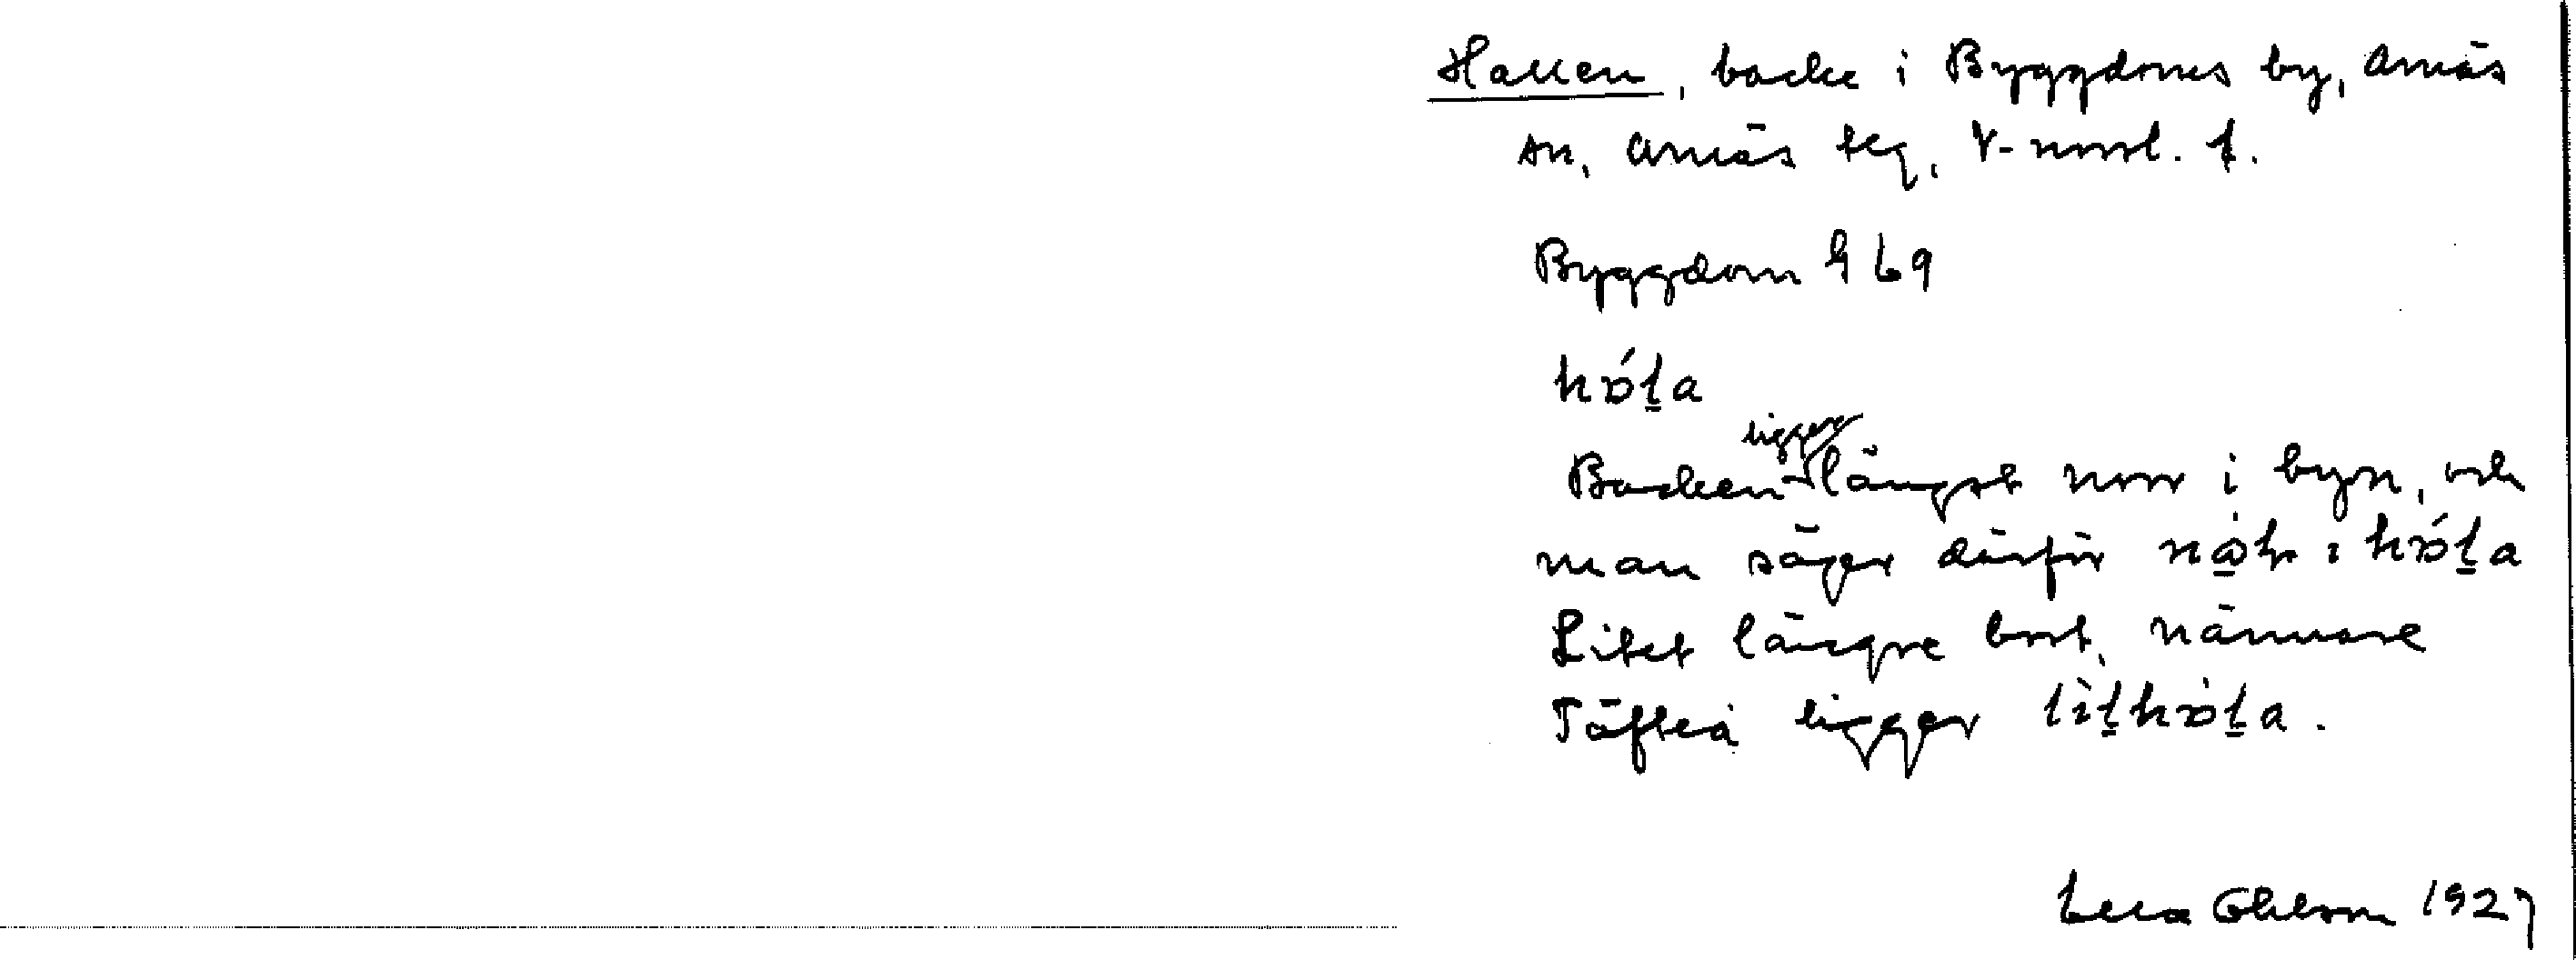 Hallen, backe i Byggdoms by, Arnäs
sn, Arnäs tlg, V-norrl. l.
Byggdom G 69
hɔ́l̲a
Backen ligger längst norr i byn, och
man säger därför i hɔ́l̲a
Litet längre bort, närmare
Täfteå ligger lìl̲hɔ̀l̲a.
Ella Ohlson 1927